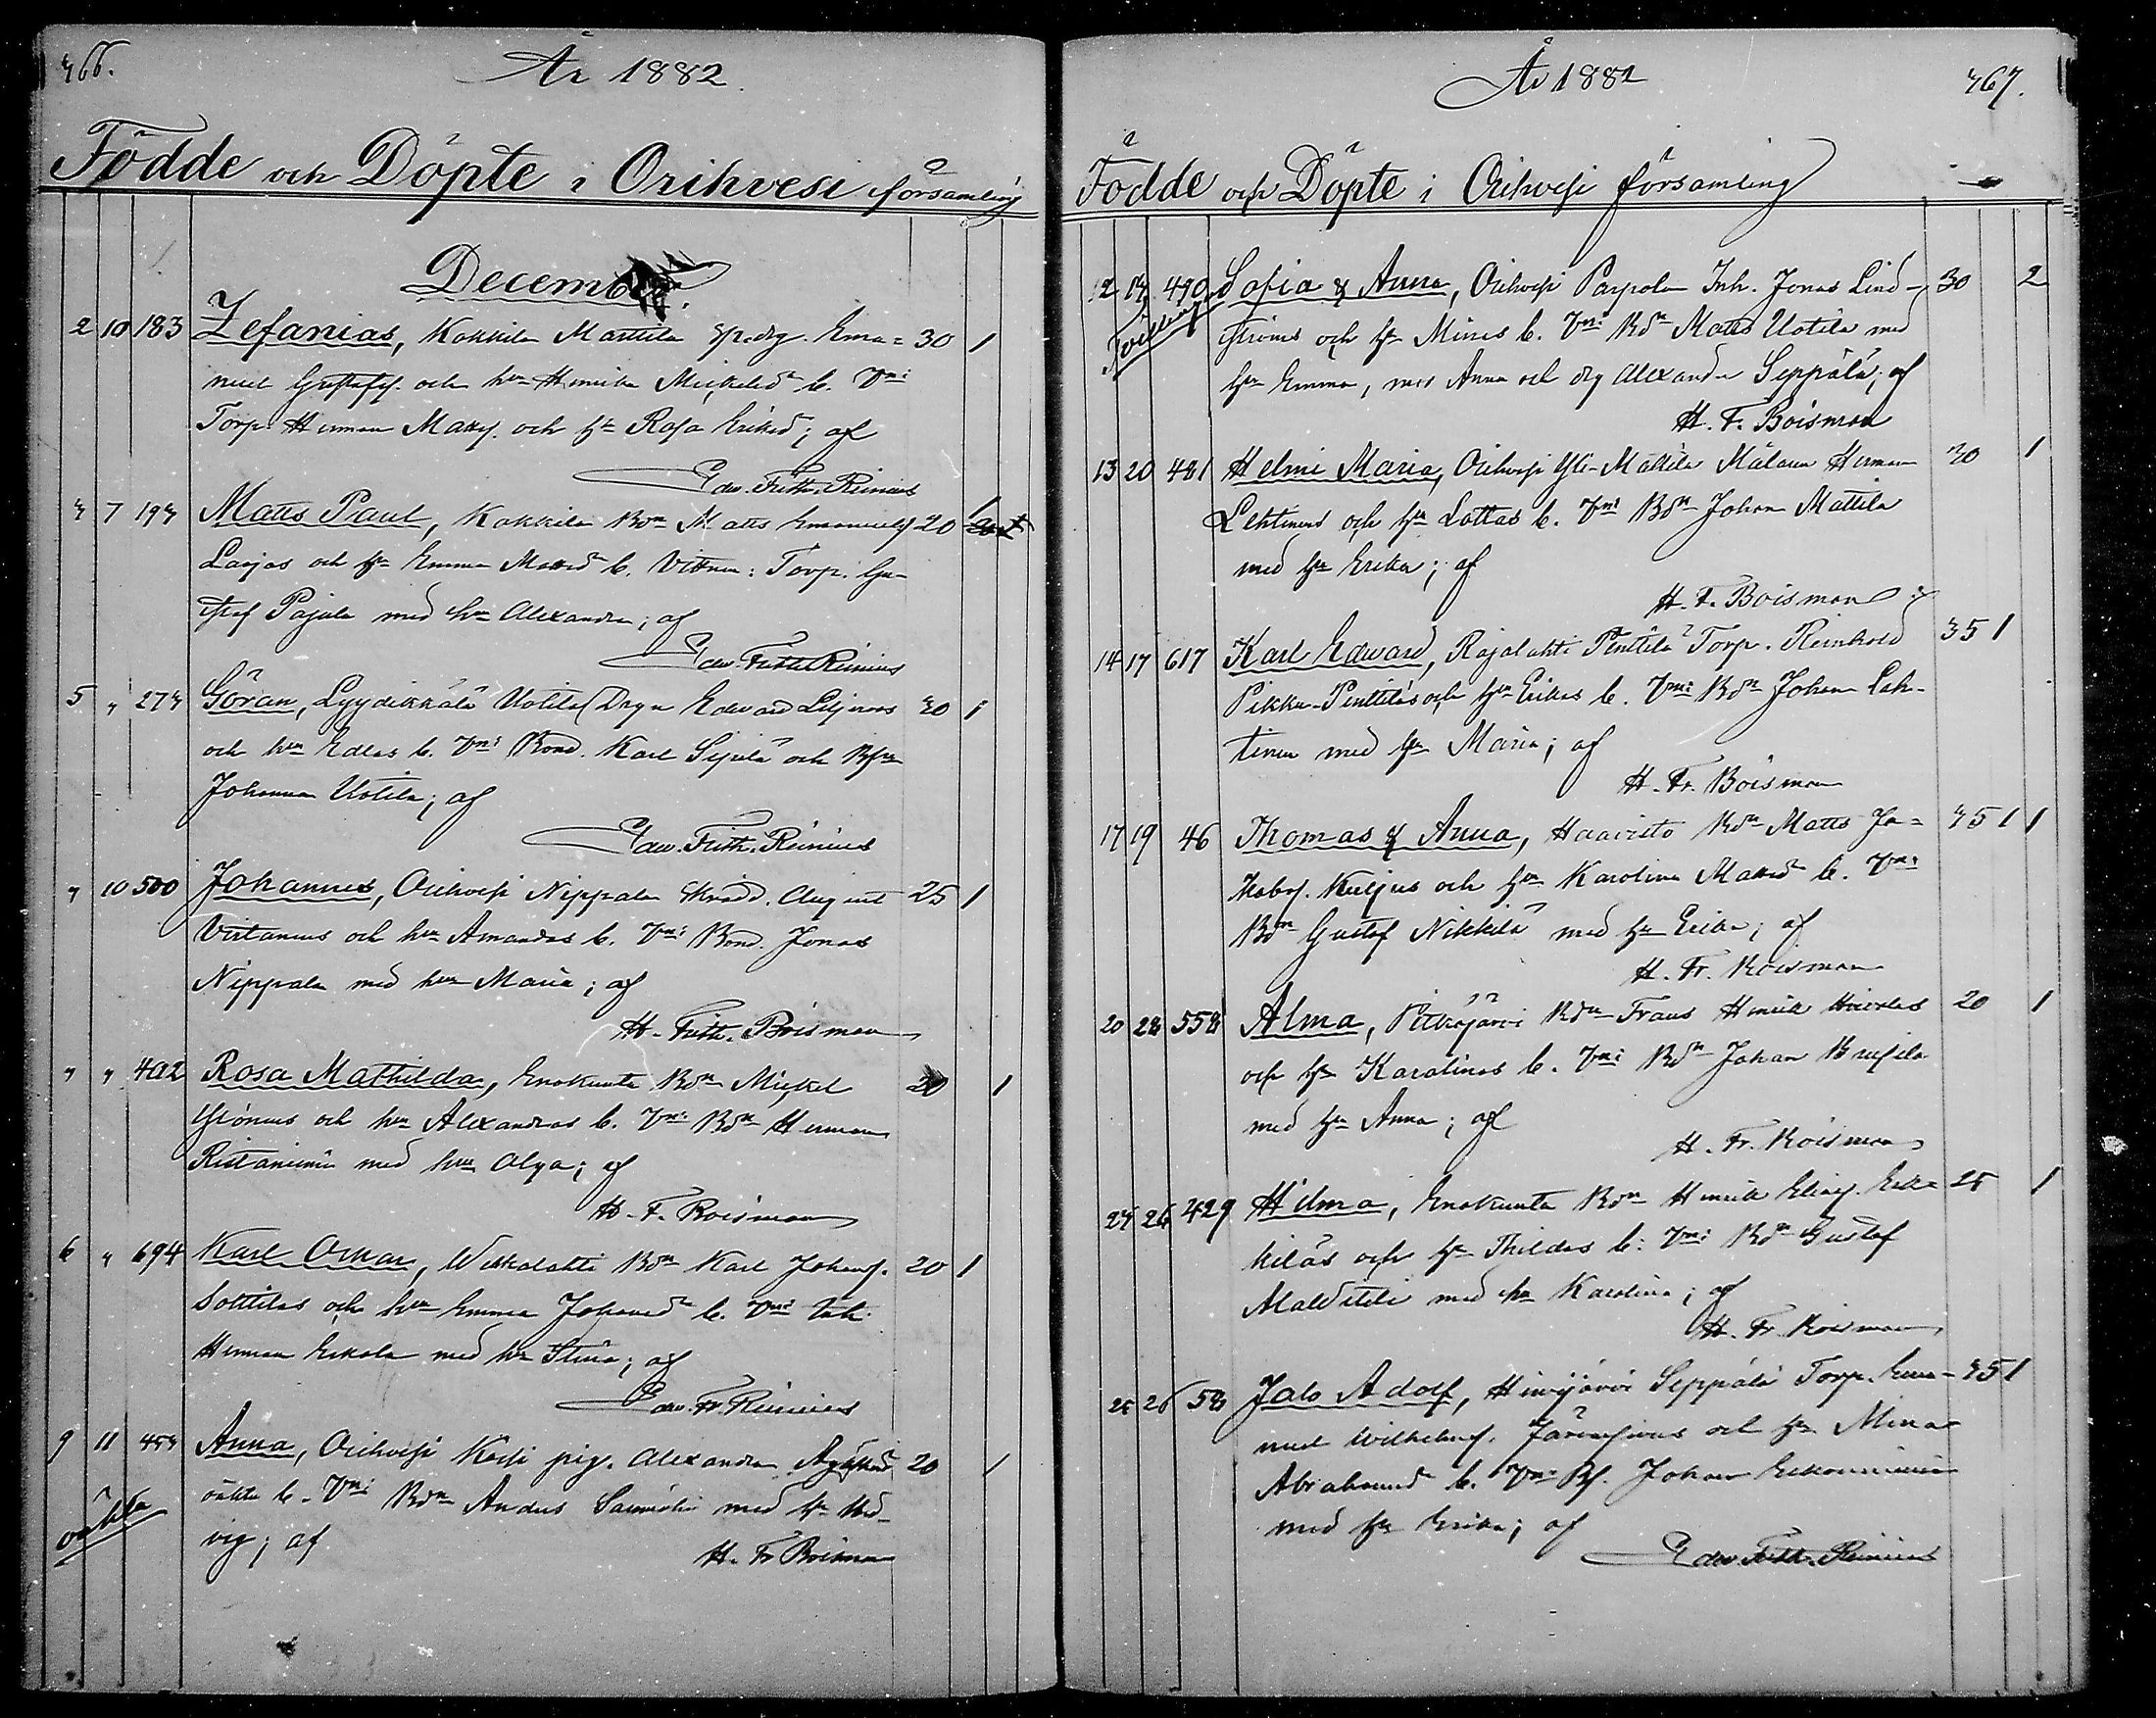 366.
År 1882.
Födde och Döpte i Orihvesi församling
December.
2 10 183 Zefanias, Kokkila Marttila Ema= 30 1
nuel Gustafs. och hu Henrika Mickelsd b. Vn:
Torp. Herman Matts. och hu Rosa Eriksd; af
Edw. Frith. Reinius
3 7 193 Matts Paul, Kokkila Bdn Matts Emanuels 20 1
Larjas och hu Emma Mattsd b. Vittnen: Torp. Gu-
staf Pajula med hu Alexandra; af
Edw. Frith. Reinius
5 " 273 Göran, Lyydikkälä Uotila Drgn Edward Liljeroos 30 1
och hu Edlas b. Vn: Bond. Karl Sipilä och
Johanna Uotila; af
Edw. Frith. Reinius
" 10 500 Johannes, Orihvesi Nippala Skradd. August 25 1
Virtanens och hu Amandas b. Vn: Bond. Jonas
Nippala med hu Maria; af
H. Frith. Boisman
" " 402 Rosa Mathilda, Enokunta Bdn Mickel 20 1
Grönius och hu Alexandras b. Vn: Bdn Herman
Ristaniemi med hu Olga; af
H. F. Boisman
6 " 694 Karl Oskar, Wekkalahti Bdn Karl Johans. 20 1
Sottilas och hu Emma Johansd b. Vn:
Herman Erkola med hu Stina; af
Edw. Fr. Reinius
9 11 453 Anna, Orihvesi pig. Alexandra 20 1
oäkta
oäkta b. Vn: Bdn Anders med hu Hed-
vig; af
H. Fr Boisman
År 1882
367.
Födde och Döpte i Orihvesi församling
12 14 490 Sofia & Anna, Orihvesi Parpola Inh. Jonas Lind- 30 2
Tvilling
ströms och hu Minas b. Vn: Bdn Matts Uotila med
hu Emma, mor Anna och drg Alexander Seppälä; af
H. F. Boisman
13 20 481 Helmi Maria, Orihvesi Yli-Mattila Målaren Herman 30 1
Lehtinens och hu Lottas b. Vn: Bdn Johan Mattila
med hu Erika; af
H. F. Boisman
14 17 617 Karl Edward, Rajalahti Penttilä Torp. Reinhold 35 1
Pikku-Penttiläs och hu Erikas b. Vn: Bdn Johan Leh-
tinen med hu Maria; af
H. Fr. Boisman
17 19 46 Thomas & Anna, Haavisto Bdn Matts Ja= 35 1 1
kobs. Kuljus och hu Karolina Mattsd b. Vn:
Bdn Gustaf Nikkilä med hu Erika; af
H. Fr. Boisman
20 28 558 Alma, Pitkäjärvi Bdn Frans Henrik 20 1
och hu Karolinas b. Vn: Bdn Johan
med hu Anna; af
H. Fr. Boisman
24 26 429 Hilma, Enokunta Bdn Henrik Elias. Erk= 25 1
kiläs och hu Thildas b. Vn: Bdn Gustaf
med hu Karolina; af
H. Fr. Boisman
25 26 58 Jalo Adolf, Hirvijärvi Seppälä Torp. Ema- 35 1
nuel Wilhelms. och hu Mina
Abrahamsd b. Vn: Johan
med hu Erika; af
Edw. Frith. Reinius